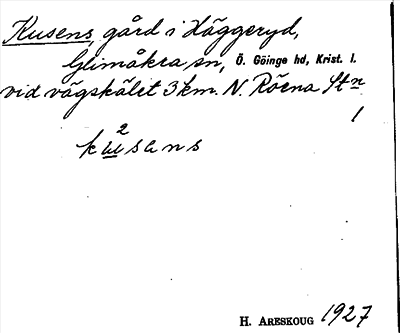 Kusens, gård i Häggeryd,
Glimåkra sn, Ö. Göinge hd, Krist. l.
vid vägskälet 3 km. N. Röena Stn
1
2
kusans
H. ARESKOUG 1927